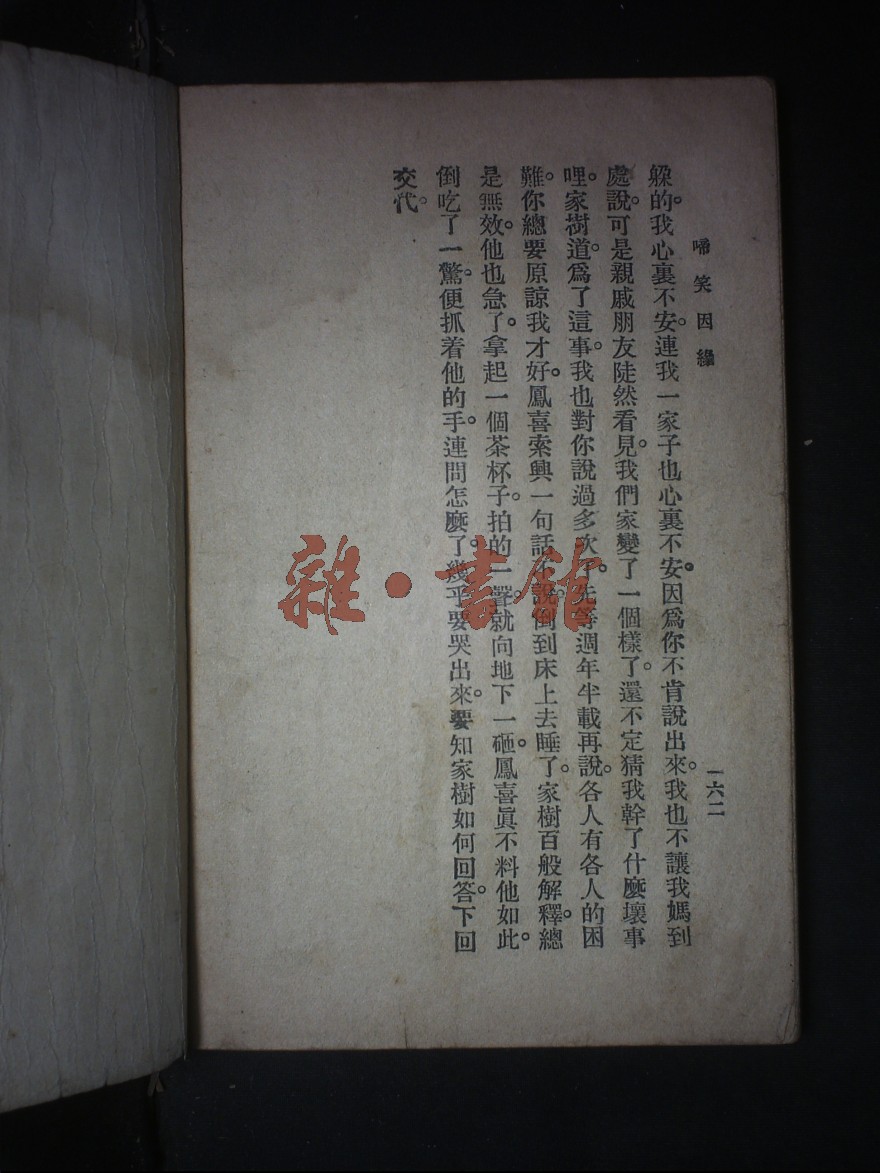 啼笑因緣
一六二
躱的。我心裏不安。連我一家子也心裏不安。因爲你不肯說出來。我也不讓我媽到
處說。可是親戚朋友陡然看見。我們家變了一個樣了。還不定猜我幹了什麼壞事
哩。家樹道。爲了這事。我也對你說過多次了。先等週年半載再說。各人有各人的困
難。你總要原諒我才好。鳳喜索興一句話不說。倒到床上去睡了。家樹百般解釋。總
是無效。他也急了。拿起一個茶杯子。拍的一聲。就向地下一砸。鳳喜眞不料他如此。
倒吃了一驚。便抓着他的手。連問怎麼了。幾乎要哭出來。要知家樹如何回答。下回
交代。
雜·書館